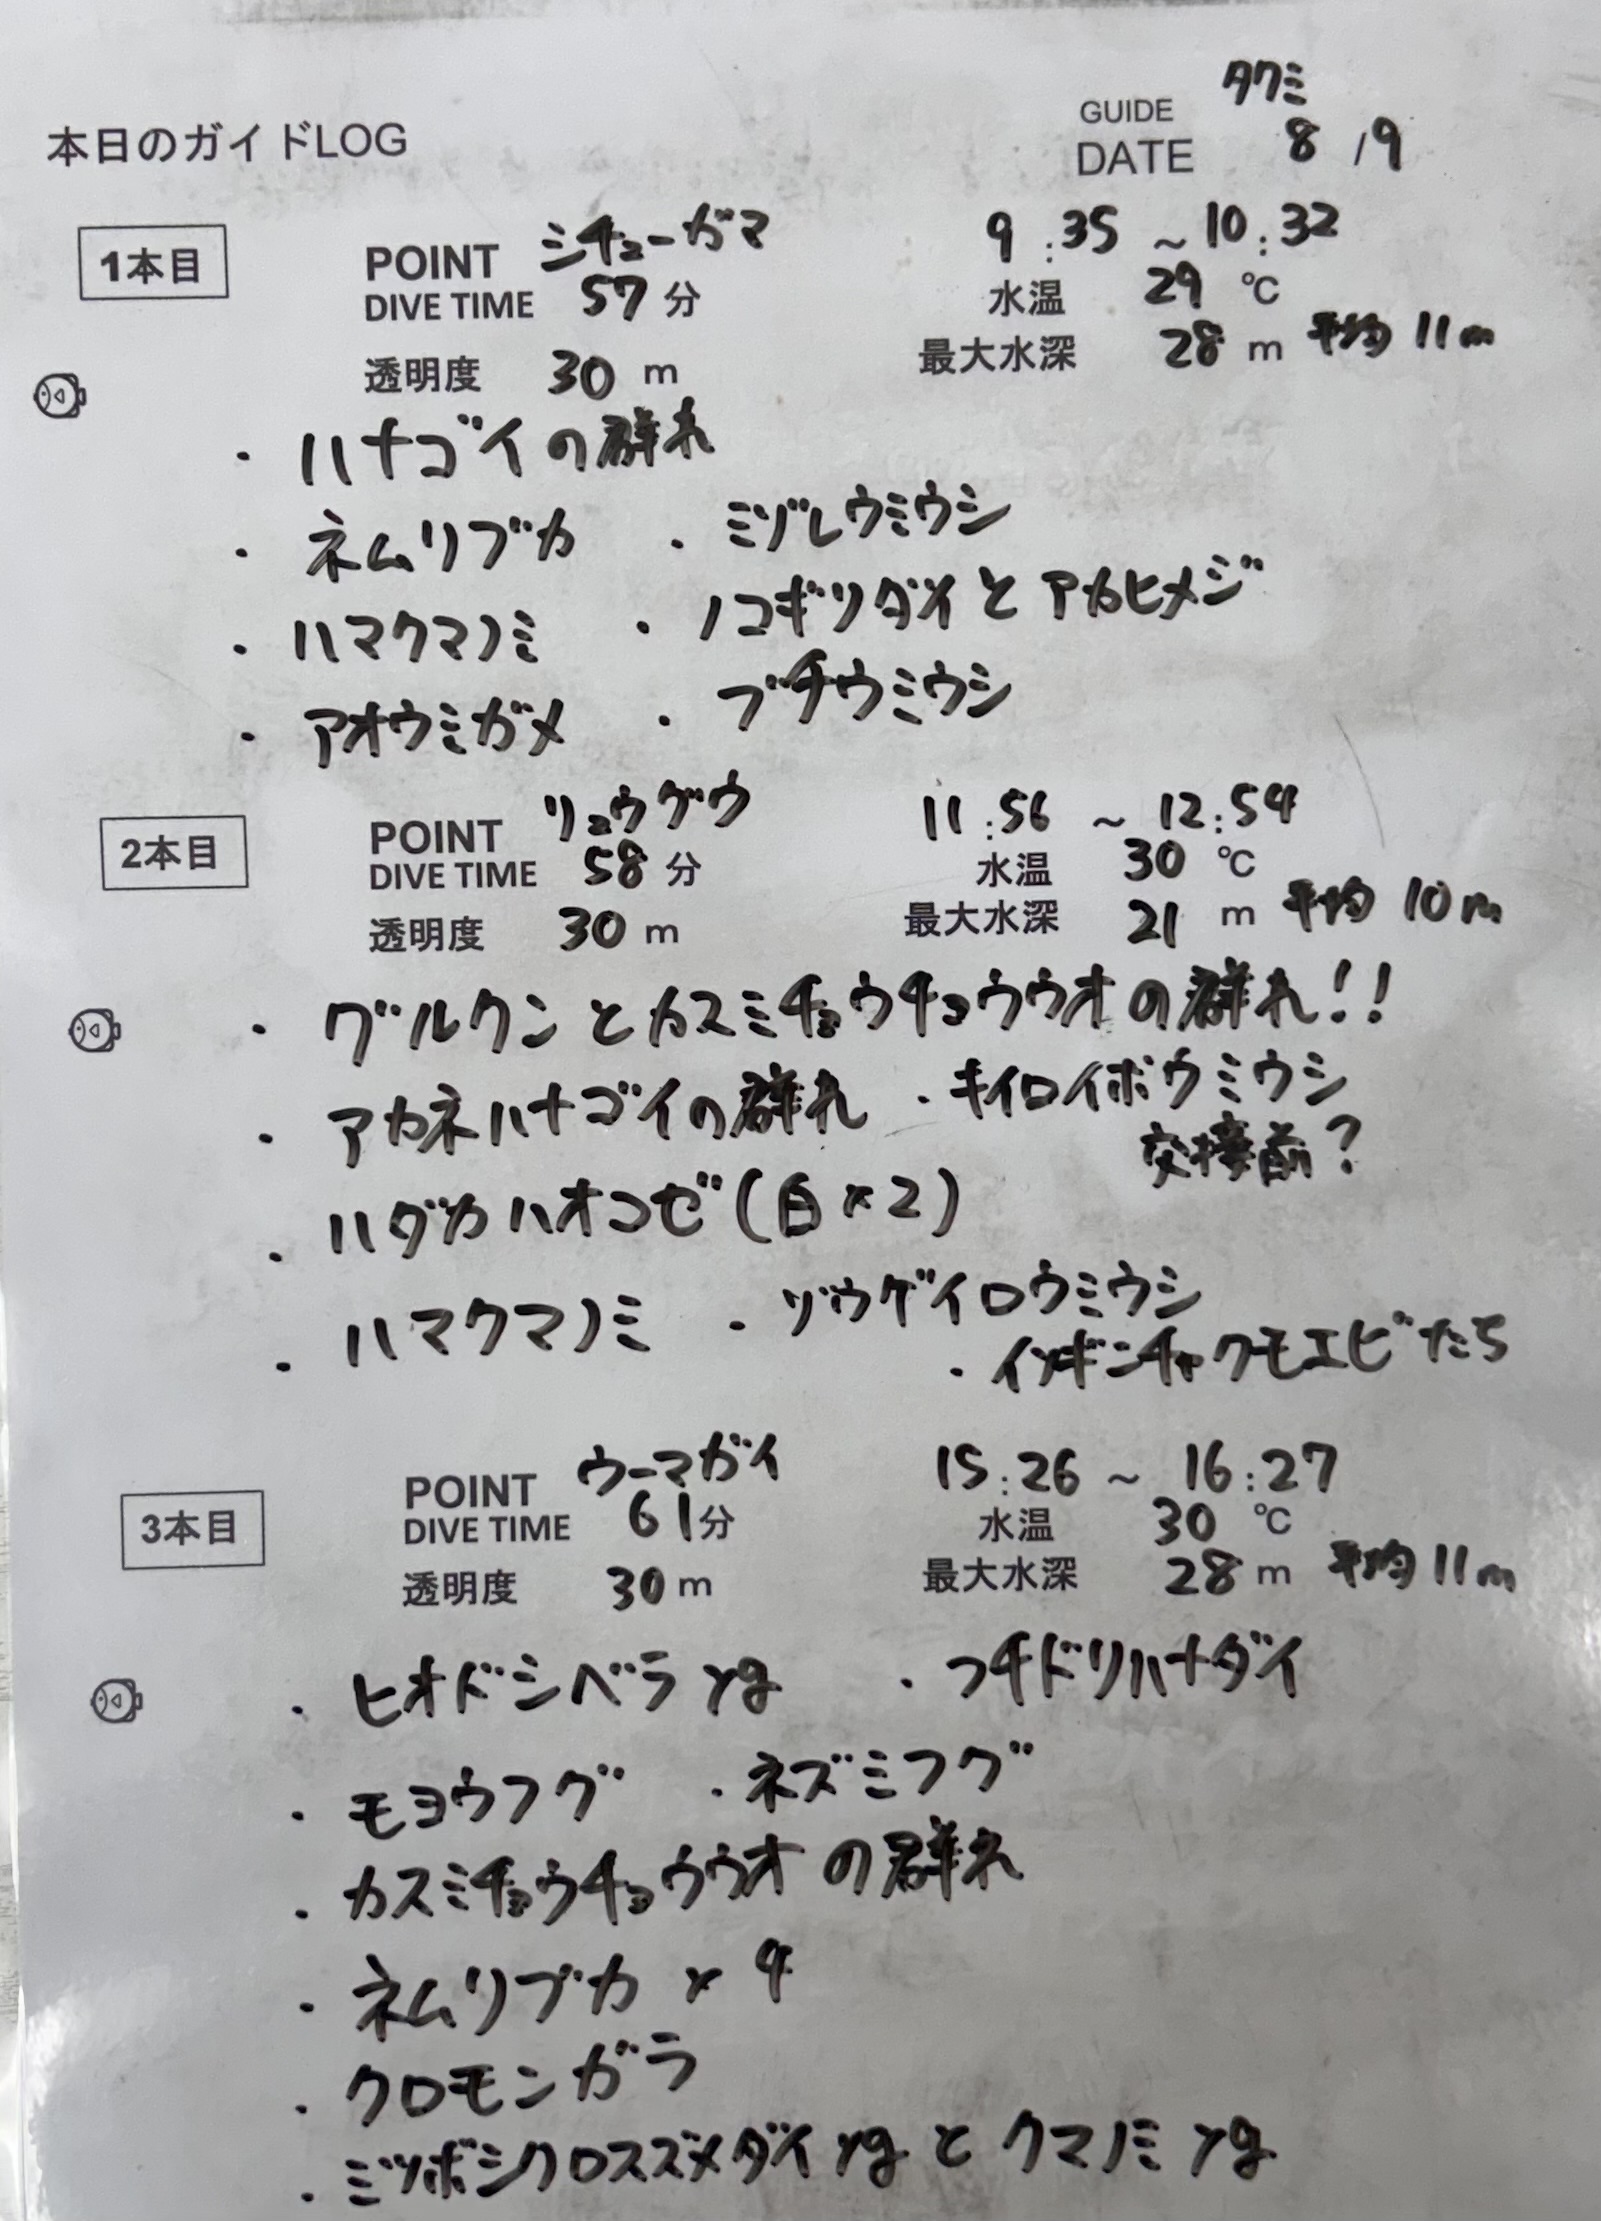 タクミ
本日のガイドLOG GUIDE
DATE 8/9
1本目 POINT シチューガマ 9:35 ~ 10:32
DIVE TIME 57分 水温 29℃
透明度 30m 最大水深 28m 平均11m
・ハナゴイの群れ
・ネムリブカ ・ミゾレウミウシ
・ハマクマノミ ・ノコギリダイとアカヒメジ
・アオウミガメ ・ブチウミウシ
2本目 POINT リュウグウ 11:56 ~ 12:54
DIVE TIME 58分 水温 30℃
透明度 30m 最大水深 21m 平均10m
・グルクンとカスミチョウチョウウオの群れ!!
・アカネハナゴイの群れ ・キイロイボウミウシ
交接前?
・ハダカハオコゼ(白×2)
・ハマクマノミ ・ゾウゲイロウミウシ
・イソギンチャクモエビたち
3本目 POINT ウーマガイ 15:26 ~ 16:27
DIVE TIME 61分 水温 30℃
透明度 30m 最大水深 28m 平均11m
・ヒオドシベラyg ・フチドリハナダイ
・モヨウフグ ・ネズミフグ
・カスミチョウチョウウオの群れ
・ネムリブカ×4
・クロモンガラ
・ミツボシクロスズメダイygとクマノミyg